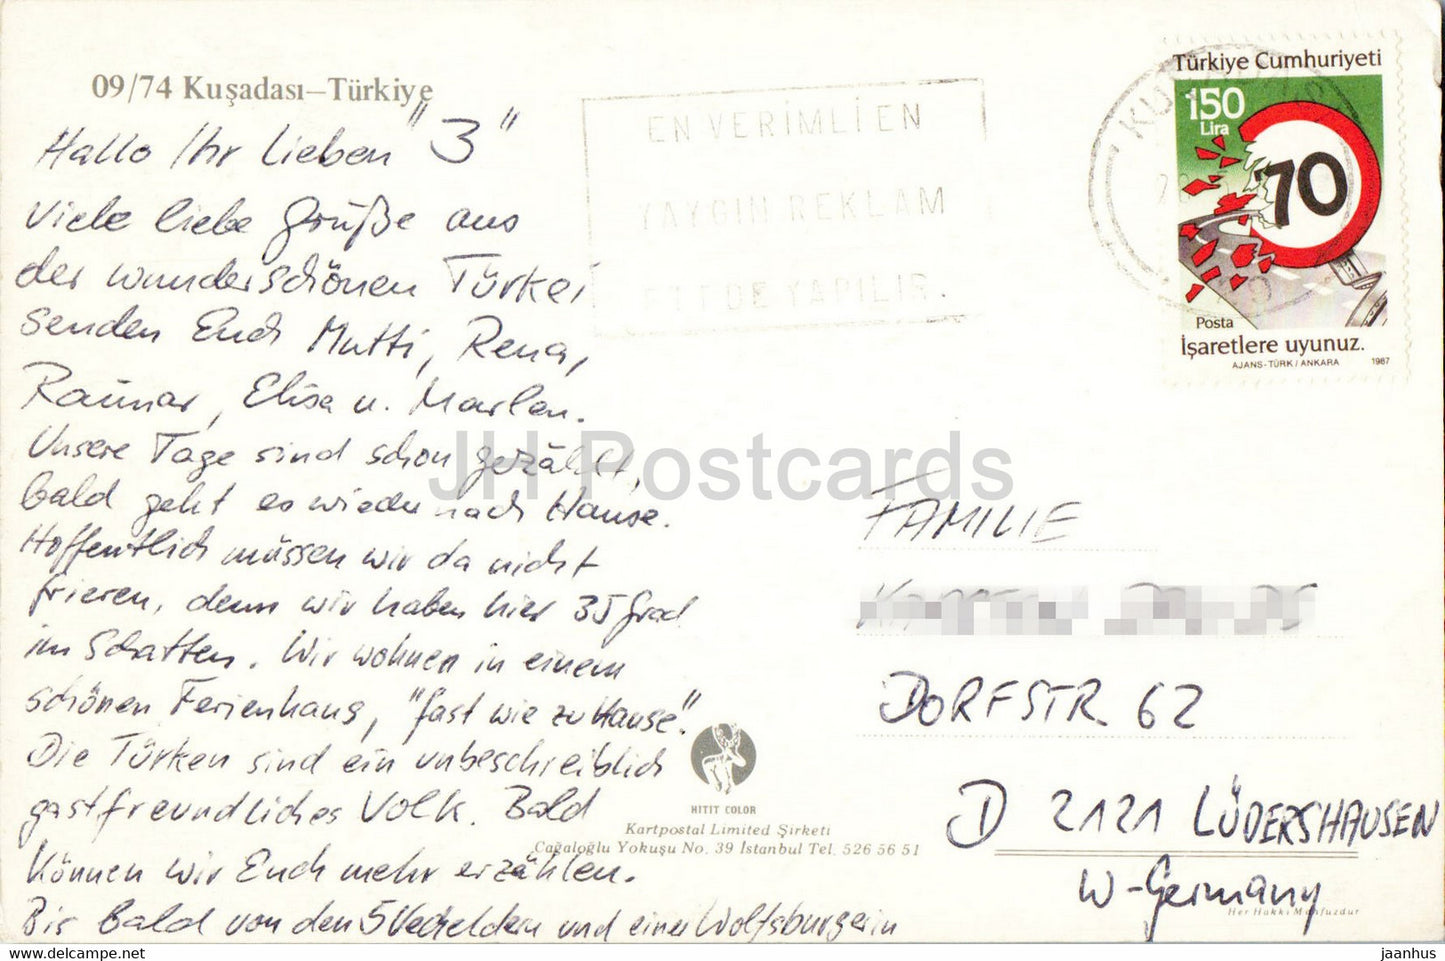 09/74 Kuşadası–Türkiye
Hallo Ihr Lieben "3"
Viele liebe Grüße aus
der wunderschönen Türkei
senden Euch Mutti, Rena,
Raimar, Elisa u. Marlen.
Unsere Tage sind schon gezählt,
bald geht es wieder nach Hause.
Hoffentlich müssen wir da nicht
frieren, denn wir haben hier 35 Grad
im Schatten. Wir wohnen in einem
schönen Ferienhaus, "fast wie zu Hause".
Die Türken sind ein unbeschreiblich
gastfreundliches Volk. Bald
können wir Euch mehr erzählen.
Bis bald von den 5 und einer Wolfsburgerin
EN VERİMLİ EN
YAYGIN REKLAM
DE YAPILIR.
Türkiye Cumhuriyeti
150
Lira
70
Posta
İşaretlere uyunuz.
AJANS-TÜRK / ANKARA 1987
JH Postcards
FAMILIE
DORFSTR. 62
D 2121 LÜDERSHAUSEN
W-Germany
HITIT COLOR
Kartpostal Limited Şirketi
Cağaloğlu Yokuşu No. 39 İstanbul Tel. 526 56 51
Her Hakkı Mahfuzdur
www.hippostcard.com
jaanhus